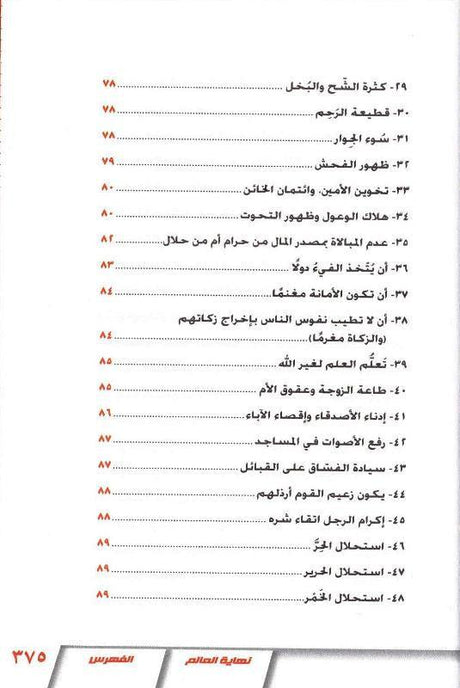 ٢٩- كثرة الشّح والبُخل ........ ٧٨
٣٠- قطيعة الرَحِم ........ ٧٨
٣١- سُوء الجِوار ........ ٧٨
٣٢- ظهور الفحش ........ ٧٩
٣٣- تخوين الأمين، وائتمان الخائن ........ ٨٠
٣٤- هلاك الوعول وظهور التحوت ........ ٨٠
٣٥- عدم المبالاة بمصدر المال من حرام أم من حلال ........ ٨٢
٣٦- أن يُتّخذ الفيءُ دولًا ........ ٨٣
٣٧- أن تكون الأمانة مغنمًا ........ ٨٤
٣٨- أن لا تطيب نفوس الناس بإخراج زكاتهم
(والزكاة مغرمًا) ........ ٨٤
٣٩- تَعلُّم العلم لغير الله ........ ٨٥
٤٠- طاعة الزوجة وعقوق الأم ........ ٨٥
٤١- إدناء الأصدقاء وإقصاء الآباء ........ ٨٦
٤٢- رفع الأصوات في المساجد ........ ٨٧
٤٣- سيادة الفسّاق على القبائل ........ ٨٧
٤٤- يكون زعيم القوم أرذلهم ........ ٨٨
٤٥- إكرام الرجل اتقاء شره ........ ٨٨
٤٦- استحلال الحِرَّ ........ ٨٩
٤٧- استحلال الحرير ........ ٨٩
٤٨- استحلال الخَمْر ........ ٨٩
نهاية العالم
الفهرس
٣٧٥